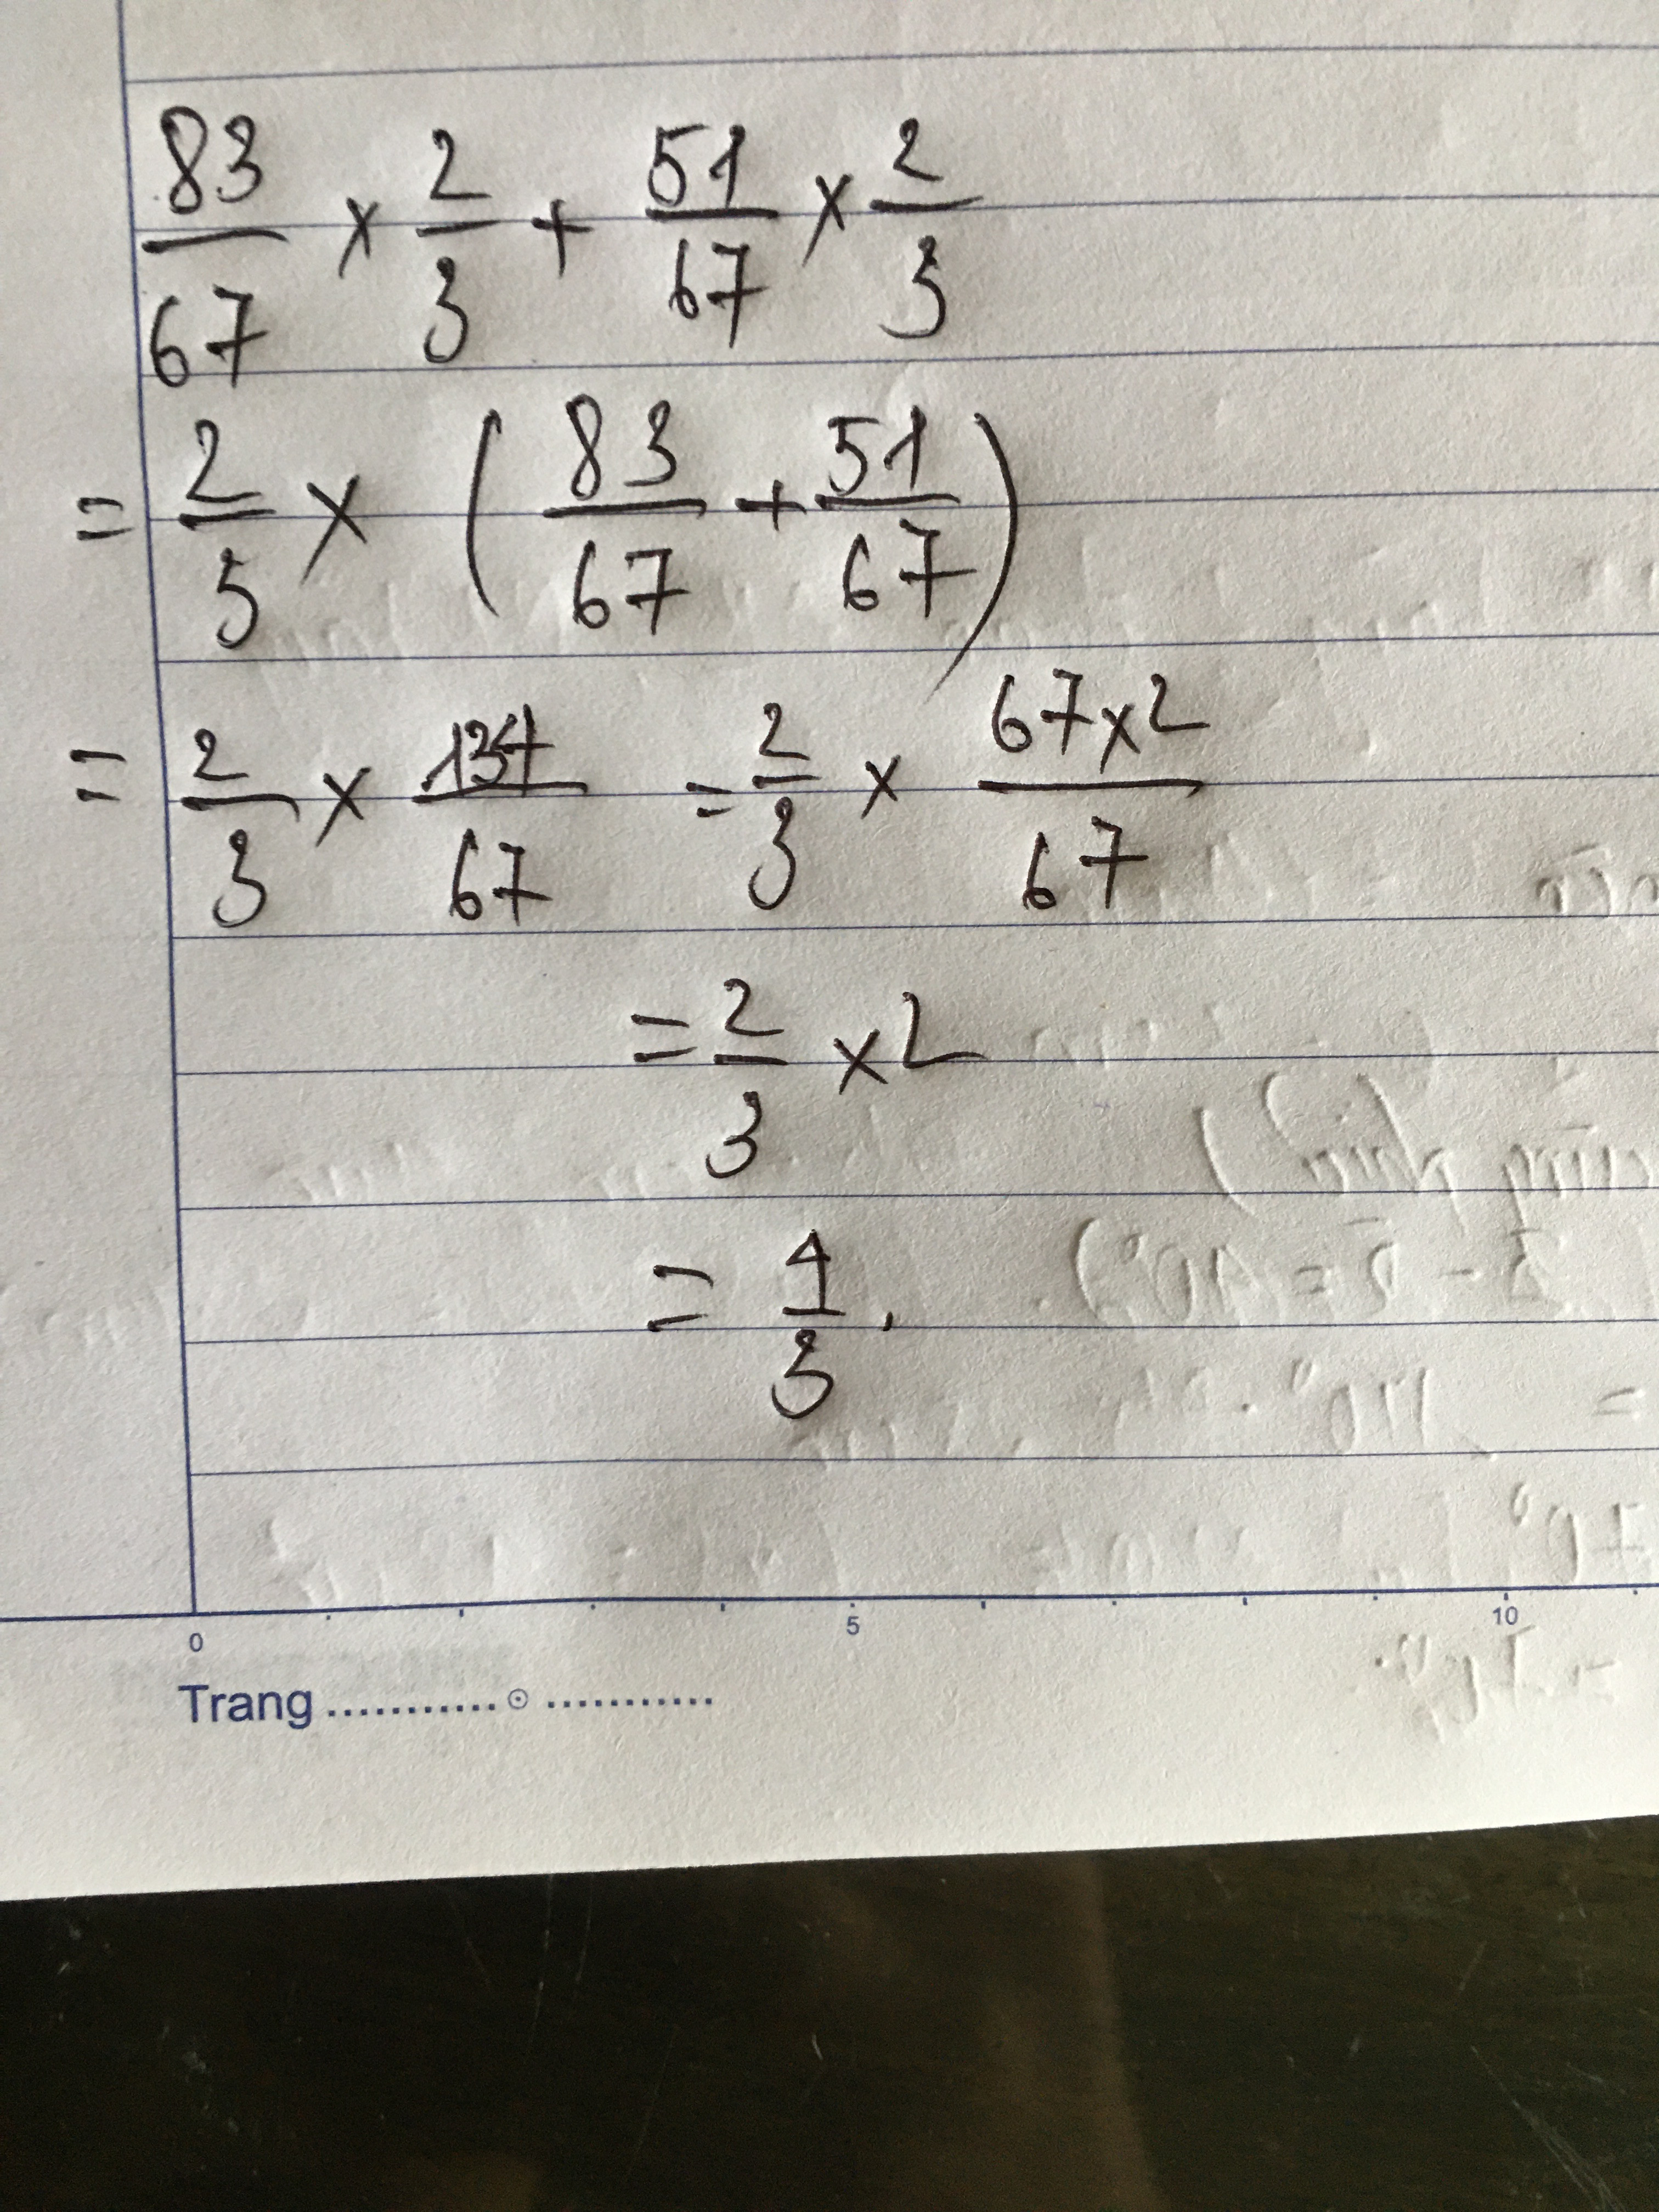 83/67 × 2/3 + 51/67 × 2/3
= 2/5 × (83/67 + 51/67)
= 2/3 × 134/67 = 2/3 × 67×2/67
= 2/3 × 2
= 4/3.
0 5 10
Trang